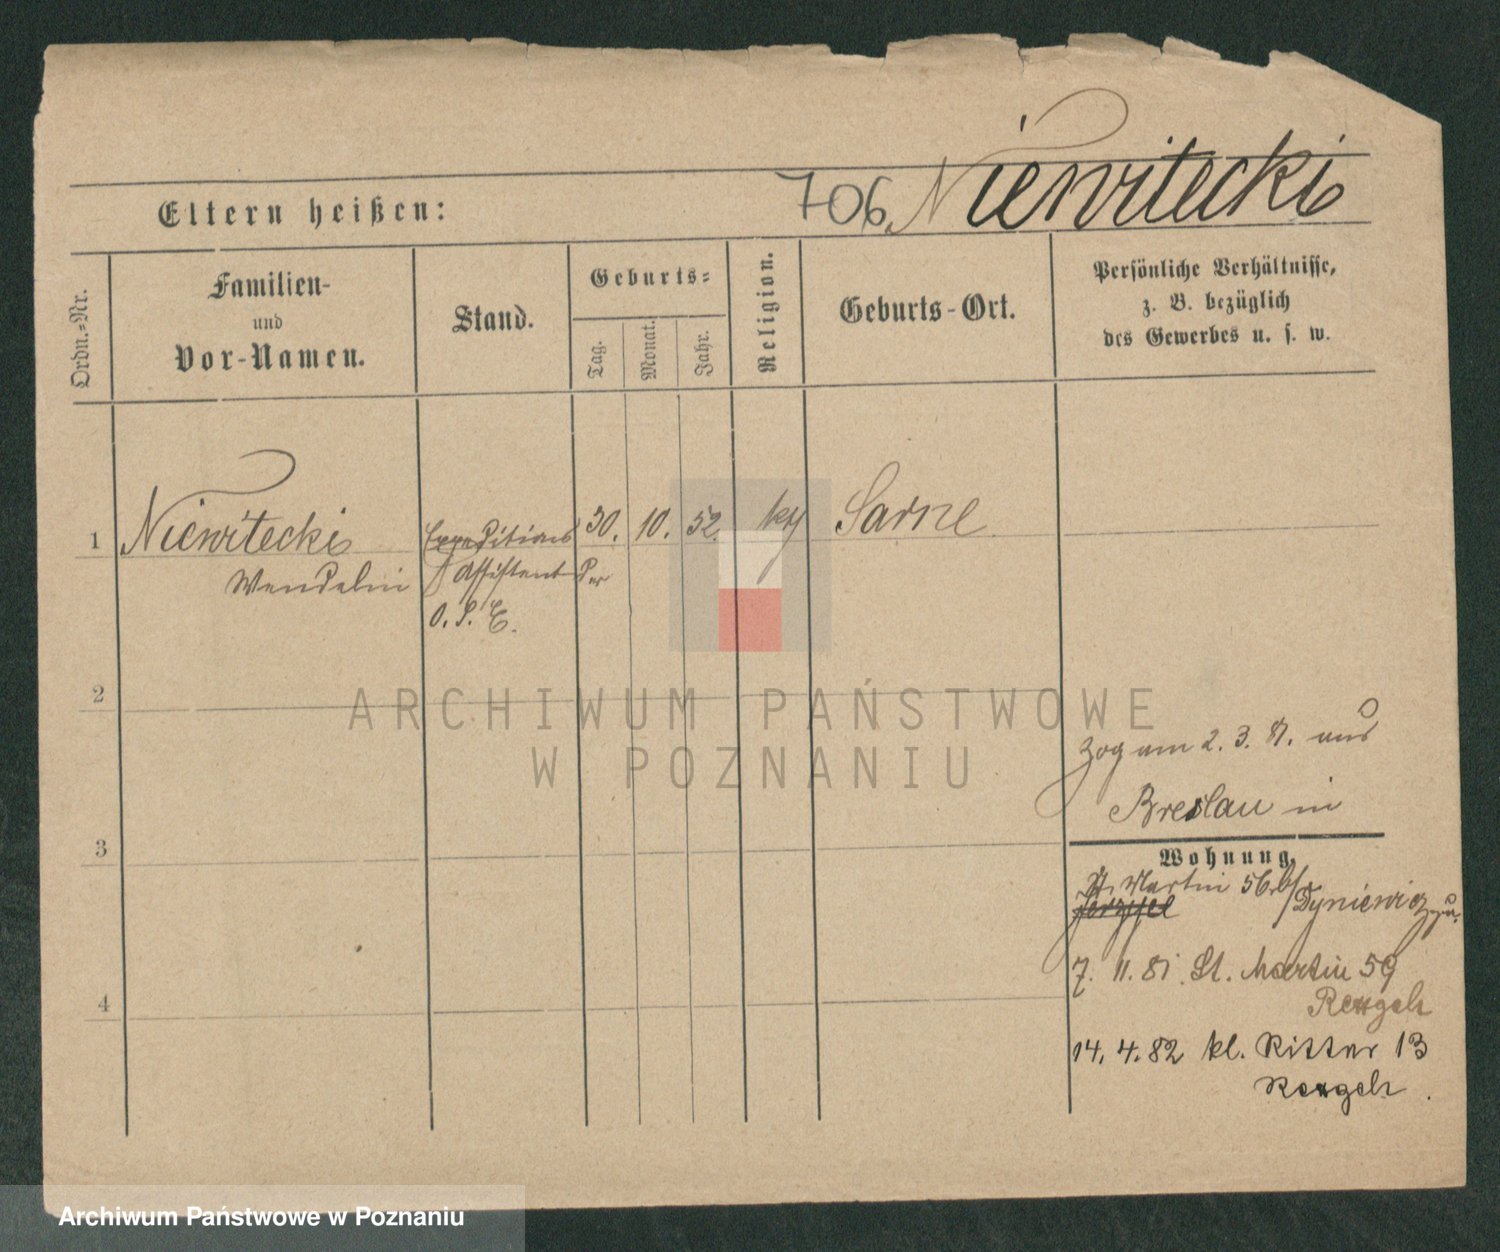 706. Niewitecki
Eltern heißen:
Ordn.=Nr.
Familien-
und
Vor-Namen.
Stand.
Geburts=
Tag.
Monat.
Jahr.
Religion.
Geburts-Ort.
Persönliche Verhältnisse,
z. B. bezüglich
des Gewerbes u. s. w.
1 Niewitecki Expeditions 30. 10. 52. kth Sarne
Wendelin Assistent der
O. S. E.
2
3
4
zog am 2. 3. 81. aus
Breslau in
Wohnung.
St. Martin 56 b/ Dyniewicz
7. 11. 81. St. Martin 59
14. 4. 82 kl. Ritter 13
ARCHIWUM PAŃSTWOWE
W POZNANIU
Archiwum Państwowe w Poznaniu